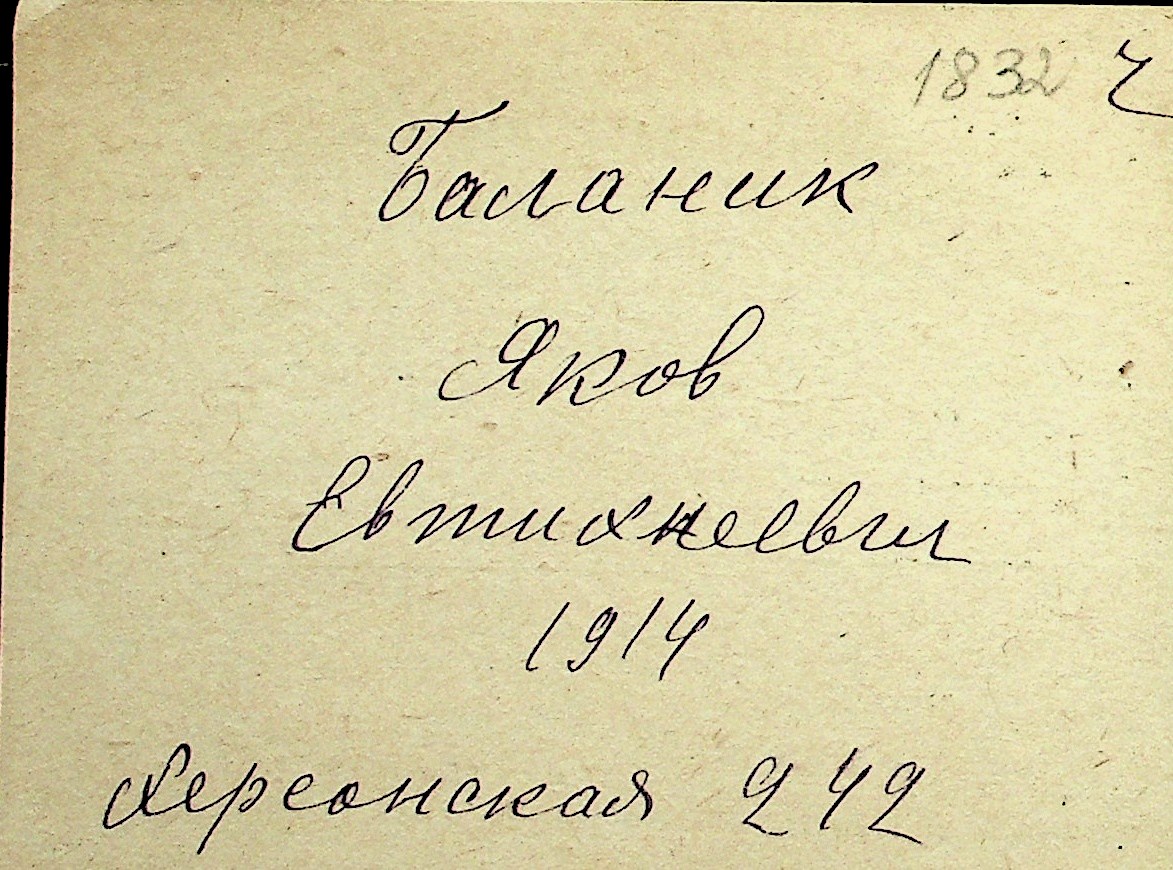 1832 ч
Баланик
Яков
Евтихнеевич
1914
Херсонская 242